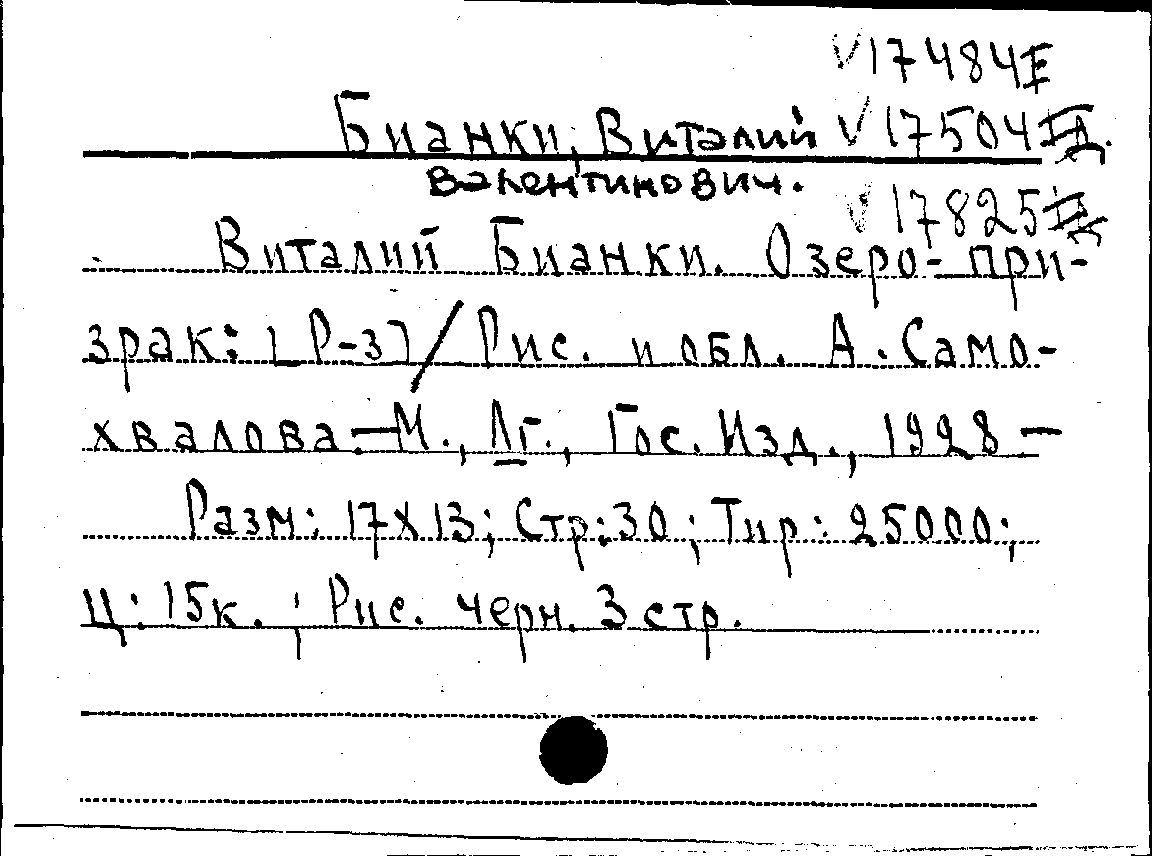 V17484
Бианки, Виталий V17504
Валентинович.
V17825
Виталий Бианки. Озеро-при-
зрак: [Р-з] / Рис. и обл. А. Само-
хвалова.—М., Лг., Гос. Изд., 1928 —
Разм: 17х13; Стр: 30; Тир: 25000;
Ц: 15к.; Рис. черн. 3 стр.